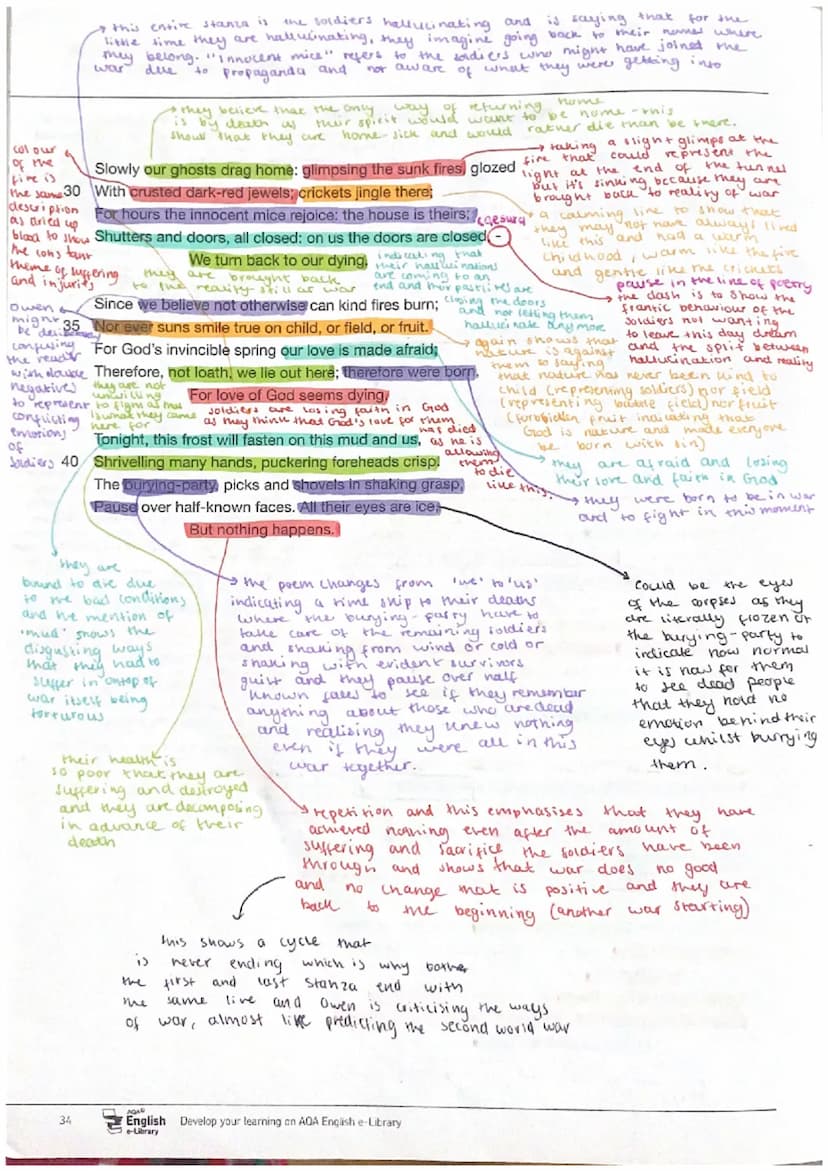 this entire stanza is the soldiers hallucinating and is saying that for the
little time they are hallucinating, they imagine going back to their homes where
they belong. "Innocent mice" refers to the soldiers who might have joined the
war due to propaganda and not aware of what they were getting into
they believe that the only way of returning home
is by death as their spirit would want to be home - this
show that they are home-sick and would rather die than be there.
colour
of the
fire is
the same
description
as dried up
blood to show
the constant
theme of suffering
and injuries
taking a slight glimps at the
fire that could represent the
light at the end of the tunnel
but it's sinking because they are
brought back to reality of war
Slowly our ghosts drag home: glimpsing the sunk fires, glozed
30 With crusted dark-red jewels; crickets jingle there;
For hours the innocent mice rejoice: the house is theirs;
Shutters and doors, all closed: on us the doors are closed, –
We turn back to our dying.
caesura
a calming line to show that
they may not have always lived
like this and had a warm
childhood, warm like the fire
and gentle like the crickets
they are brought back
to the reality still at war
indicating that
their hallucinations
are coming to an
end and their pastlives are
closing the doors
and not letting them
hallucinate any more
pause in the line of poetry
the dash is to show the
frantic behaviour of the
soldiers not wanting
to leave this day dream
and the split between
hallucination and reality
Since we believe not otherwise can kind fires burn;
35 Nor ever suns smile true on child, or field, or fruit.
For God's invincible spring our love is made afraid;
Therefore, not loath, we lie out here; therefore were born,
For love of God seems dying.
Owen
might
be
confusing
the reader
with
negatives
to represent
conflicting
emotions
of
soldiers
again shows that
nature is against
them to saying
that nature has never been kind to
child (representing soldiers) nor field
(representing battle field) nor fruit
(forbidden fruit indicating that
God is nature and made everyone
be born with sin)
they are not
unwilling
to fight as that
is what they came
here for
soldiers are losing faith in God
as they think that God's love for them
has died
as he is
allowing
them
to die
like this.
they are afraid and losing
their love and faith in God
they were born to be in war
and to fight in this moment
Tonight, this frost will fasten on this mud and us,
40 Shrivelling many hands, puckering foreheads crisp.
The burying-party, picks and shovels in shaking grasp,
Pause over half-known faces. All their eyes are ice,
But nothing happens.
they are
bound to die due
to the bad conditions
and the mention of
'mud' shows the
disgusting ways
that they had to
suffer in ontop of
war itself being
torturous
the poem changes from 'we' to 'us'
indicating a time skip to their deaths
where the burying-party have to
take care of the remaining soldiers
and shaking from wind or cold or
shaking with evident survivors
guilt and they pause over half
known faces to see if they remember
anything about those who are dead
and realising they knew nothing
even if they were all in this
war together.
could be the eyes
of the corpses as they
are literally frozen or
the burying-party to
indicate how normal
it is now for them
to see dead people
that they hold no
emotion behind their
eyes whilst burrying
them.
their health is
so poor that they are
suffering and destroyed
and they are decomposing
in advance of their
death
repetition and this emphasises that they have
achieved nothing even after the amount of
suffering and sacrifice the soldiers have been
through and shows that war does no good
and no change that is positive and they are
back to the beginning (another war starting)
this shows a cycle that
is never ending which is why bothe
the first and last stanza end with
the same line and Owen is criticising the ways
of war, almost like predicting the second world war
34
AQA
English
e-Library
Develop your learning on AQA English e-Library